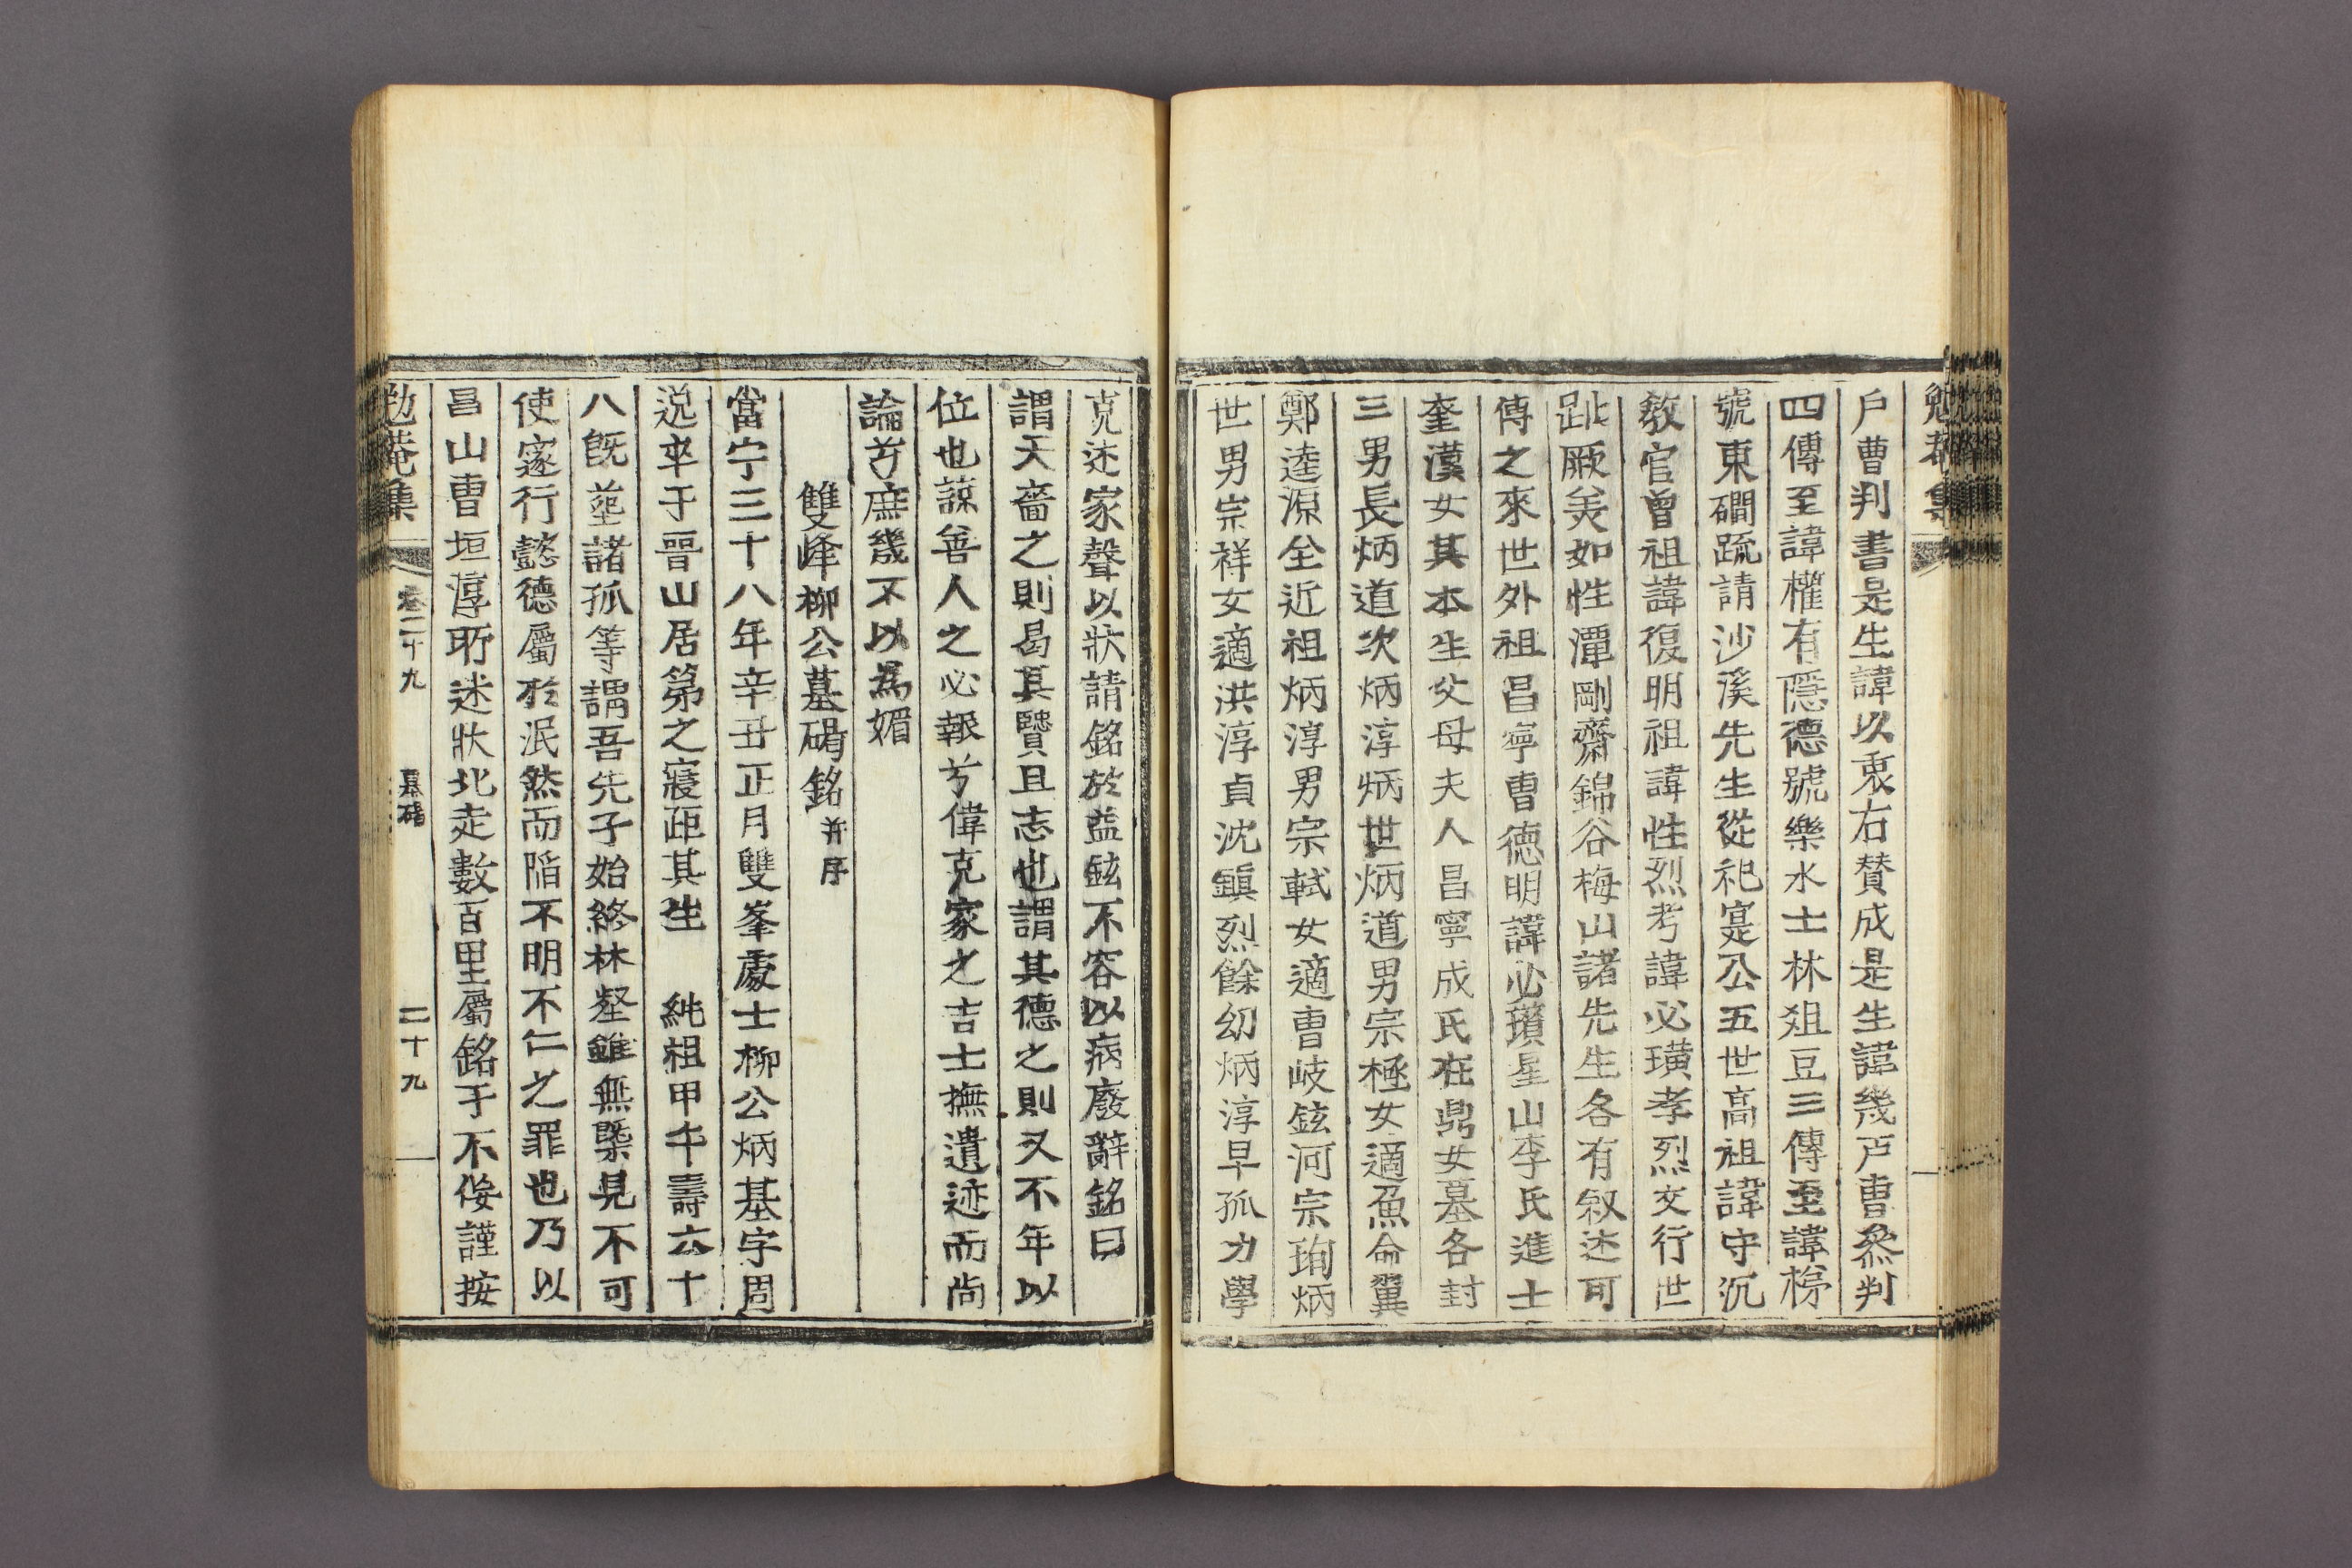 勉菴集
戶曹判書是生諱以衷右賛成是生諱幾戶曹叅判
四傳至諱權有隱德號樂水士林俎豆三傳至諱榜
號東磵疏請沙溪先生從祀寔公五世高祖諱守沉
敎官曾祖諱復明祖諱性烈考諱必璜孝烈文行世
趾厥美如性潭剛齋錦谷梅山諸先生各有叙述可
傳之來世外祖昌寧曺德明諱必璜星山李氏進士
奎漢女其本生父母夫人昌寧成氏在鼎女墓各封
三男長炳道次炳淳炳世炳道男宗極女適魚命翼
鄭逵源全近祖炳淳男宗軾女適曺岐鉉河宗珣炳
世男宗祥女適洪淳貞沈鎭烈餘幼炳淳早孤力學
克述家聲以狀請銘於益鉉不容以病廢辭銘曰
謂天嗇之則曷其賢且志也謂其德之則又不年以
位也諒善人之必報兮偉克家之吉士撫遺迹而尙
論兮庶幾不以爲媚
雙峰柳公墓碣銘并序
當宁三十八年辛丑正月雙峯處士柳公炳基字周
說卒于晋山居第之寢距其生 純祖甲午壽六十
八旣葬諸孤等謂吾先子始終林壑雖無槩見不可
使邃行懿德屬於泯然而陷不明不仁之罪也乃以
昌山曺垣淳所述狀北走數百里屬銘于不佞謹按
勉菴集 卷二十九 墓碣 二十九